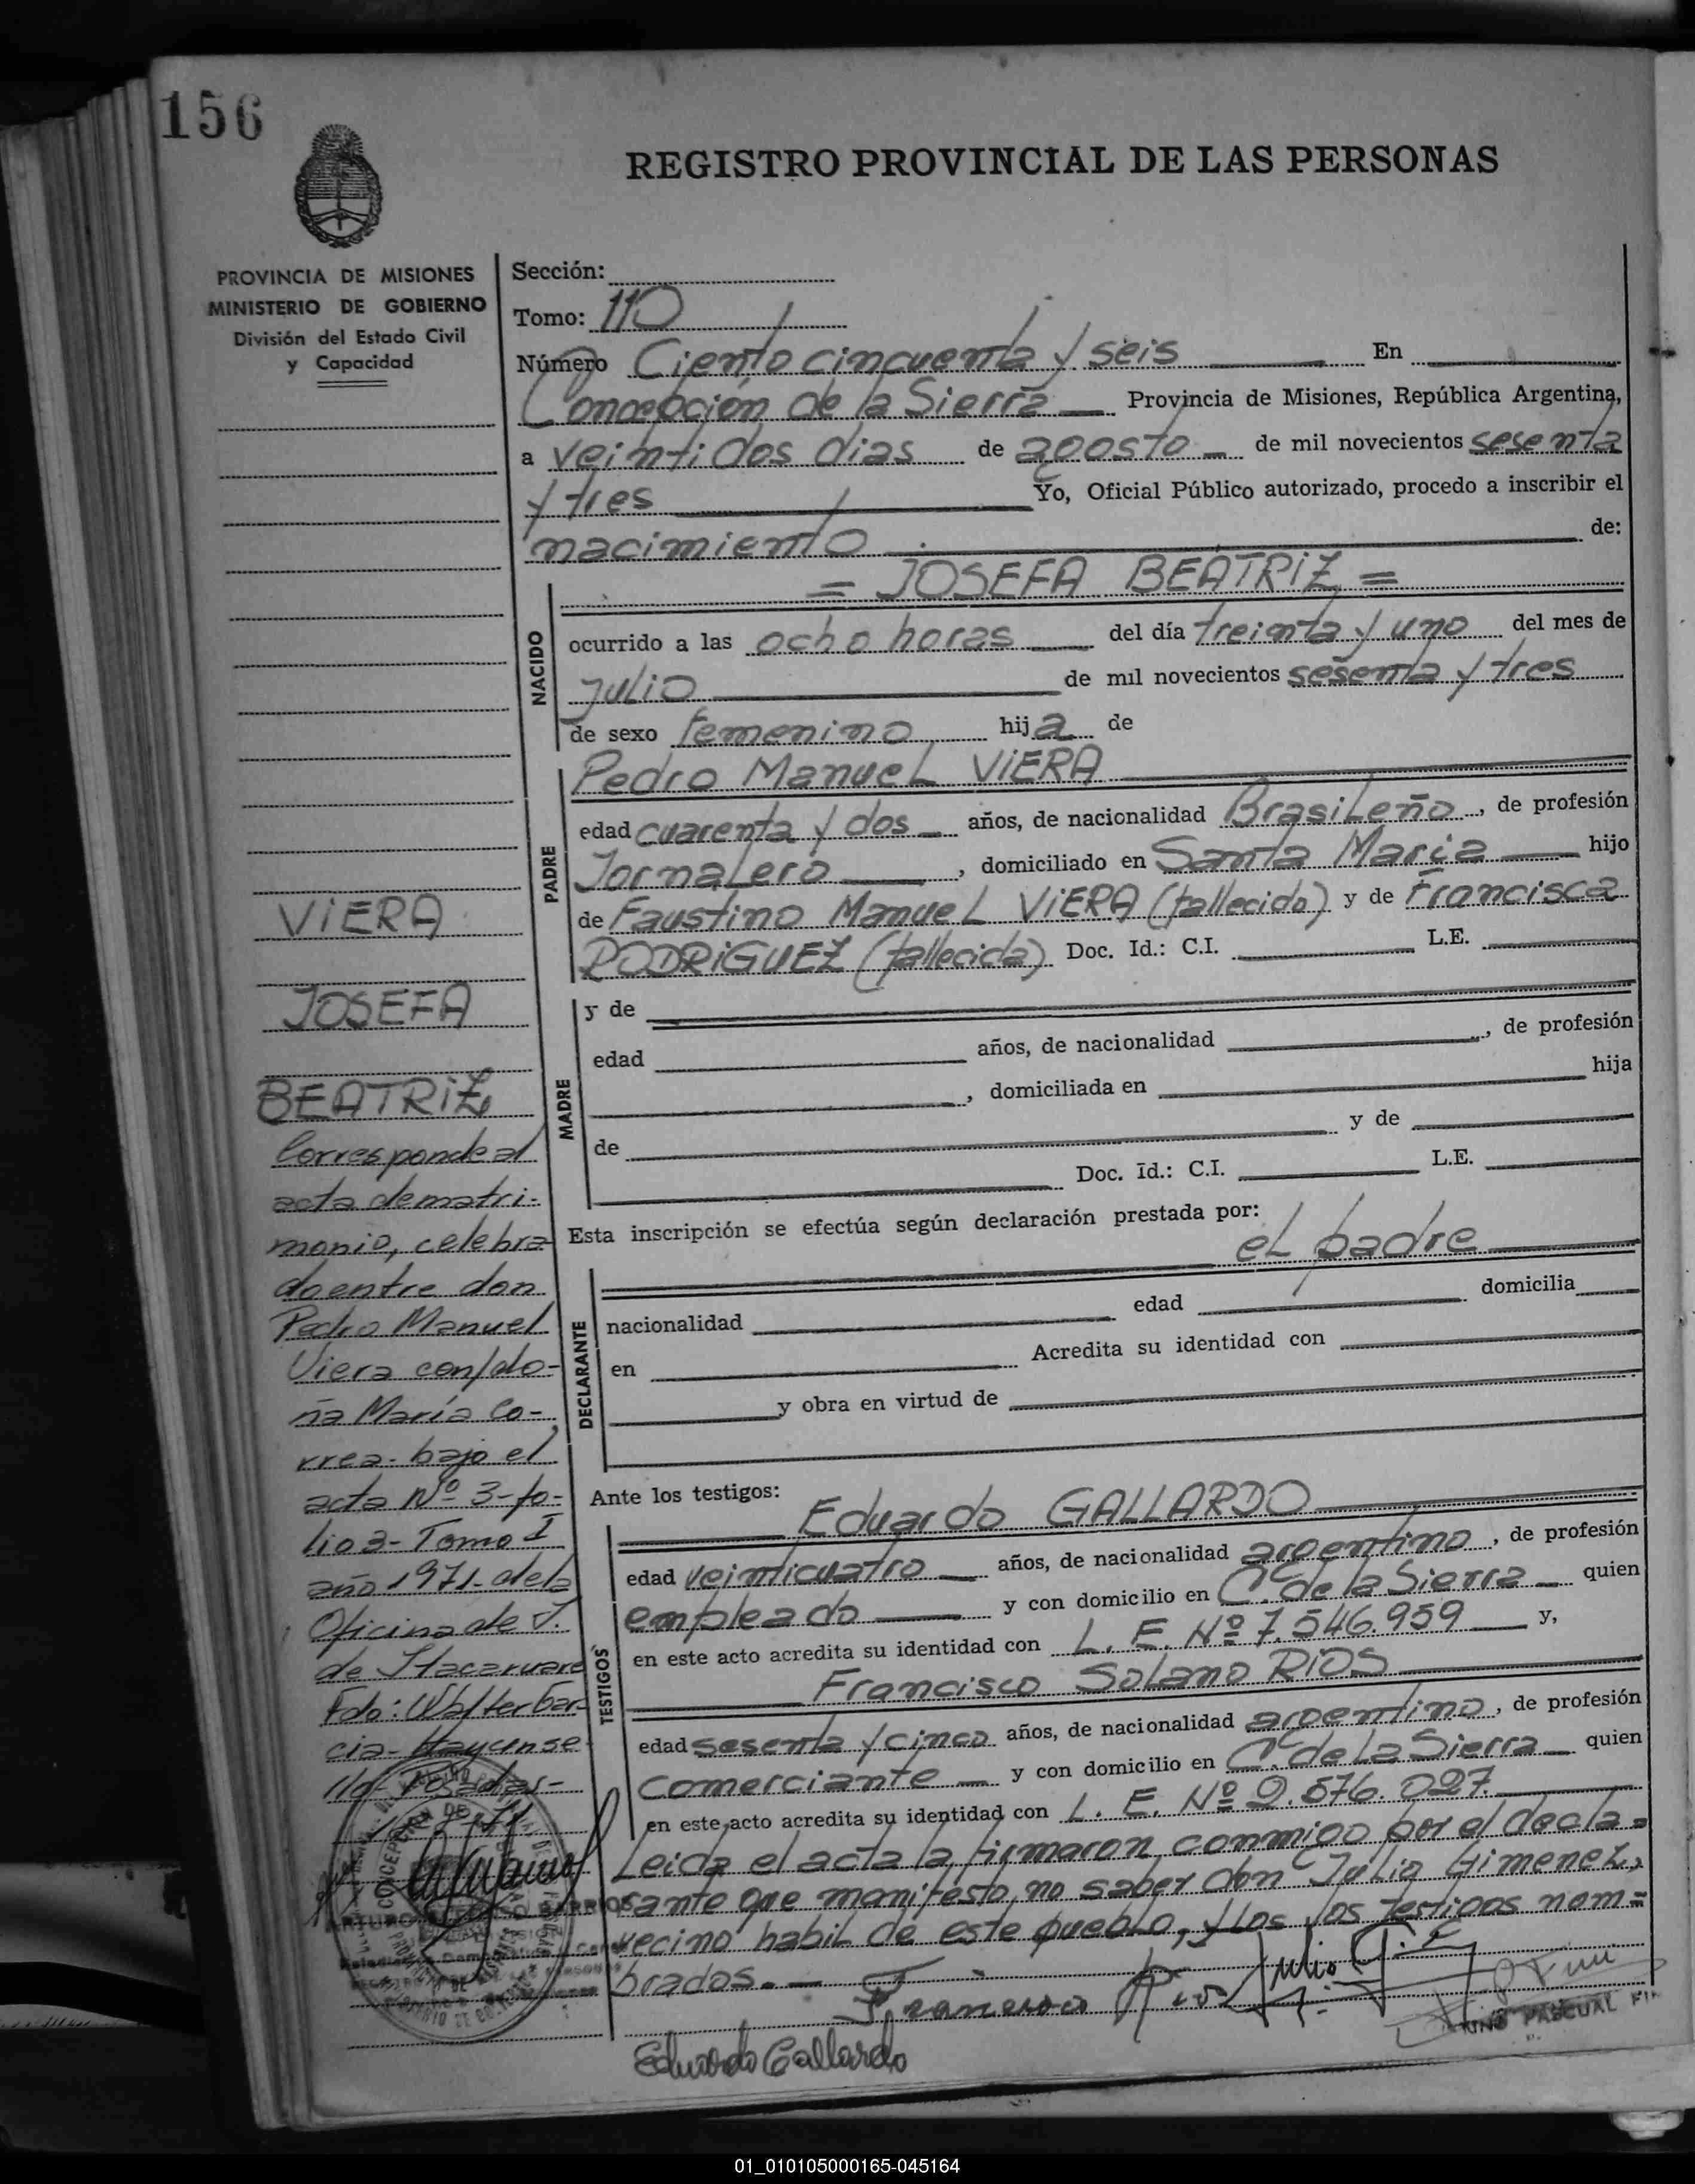 156
REGISTRO PROVINCIAL DE LAS PERSONAS
PROVINCIA DE MISIONES
MINISTERIO DE GOBIERNO
División del Estado Civil
y Capacidad
Sección:
Tomo: 110
Número Ciento cincuenta y seis En
Concepción de la Sierra Provincia de Misiones, República Argentina,
a veintidos dias de agosto de mil novecientos sesenta
y tres Yo, Oficial Público autorizado, procedo a inscribir el
nacimiento de:
= JOSEFA BEATRIZ =
NACIDO
ocurrido a las ocho horas del día treinta y uno del mes de
Julio de mil novecientos sesenta y tres
de sexo femenino hija de
PADRE
Pedro Manuel VIERA
edad cuarenta y dos años, de nacionalidad Brasileño, de profesión
Jornalero, domiciliado en Santa Maria hijo
de Faustino Manuel VIERA (fallecido) y de Francisca
RODRIGUEZ (fallecida) Doc. Id.: C.I. L.E.
MADRE
y de
edad años, de nacionalidad , de profesión
, domiciliada en hija
de y de
Doc. Id.: C.I. L.E.
Esta inscripción se efectúa según declaración prestada por:
el padre
DECLARANTE
nacionalidad edad domicilia
en Acredita su identidad con
y obra en virtud de
Ante los testigos:
Eduardo GALLARDO
TESTIGOS
edad veinticuatro años, de nacionalidad argentino, de profesión
empleado y con domicilio en C. de la Sierra quien
en este acto acredita su identidad con L. E. Nº 7.546.959 y,
Francisco Solano RIOS
edad sesenta y cinco años, de nacionalidad argentino, de profesión
comerciante y con domicilio en C. de la Sierra quien
en este acto acredita su identidad con L. E. Nº 2.576.027.
Leida el acta la firmaron conmigo por el decla=
rante que manifesto no saber don Julio Gimenez,
vecino habil de este pueblo, y los testigos nom=
brados.-
Francisco Rios
Julio
PASCUAL
Eduardo Gallardo
VIERA
JOSEFA
BEATRIZ
Corresponde al
acta de matri-
monio, celebra
do entre don
Pedro Manuel
Viera con/do-
ña María Co-
rrea- bajo el
acta Nº 3- fo-
lio 3- Tomo I
año 1971- de la
Oficina de I.
de Itacaruare
Fdo: Walter Gar-
cia-
Posadas-
ARTURO BARRIOS
01_010105000165-045164